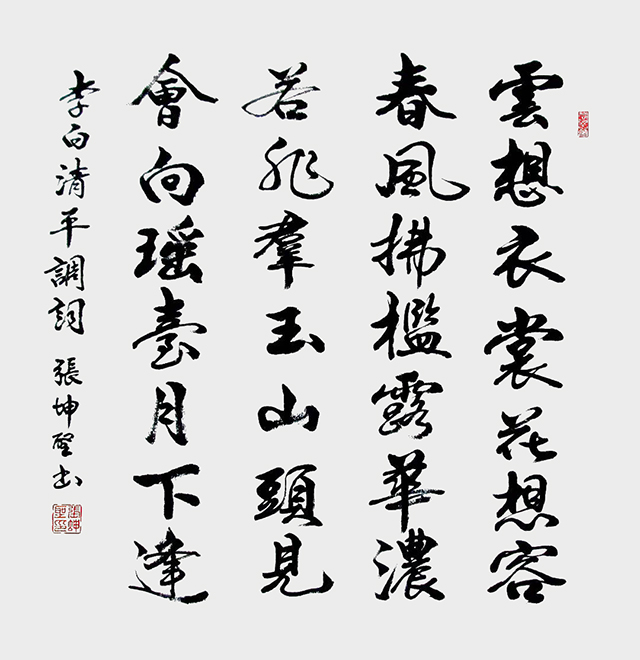 雲想衣裳花想容
春風拂檻露華濃
若非羣玉山頭見
會向瑶臺月下逢
李白清平調詞 張坤堅书